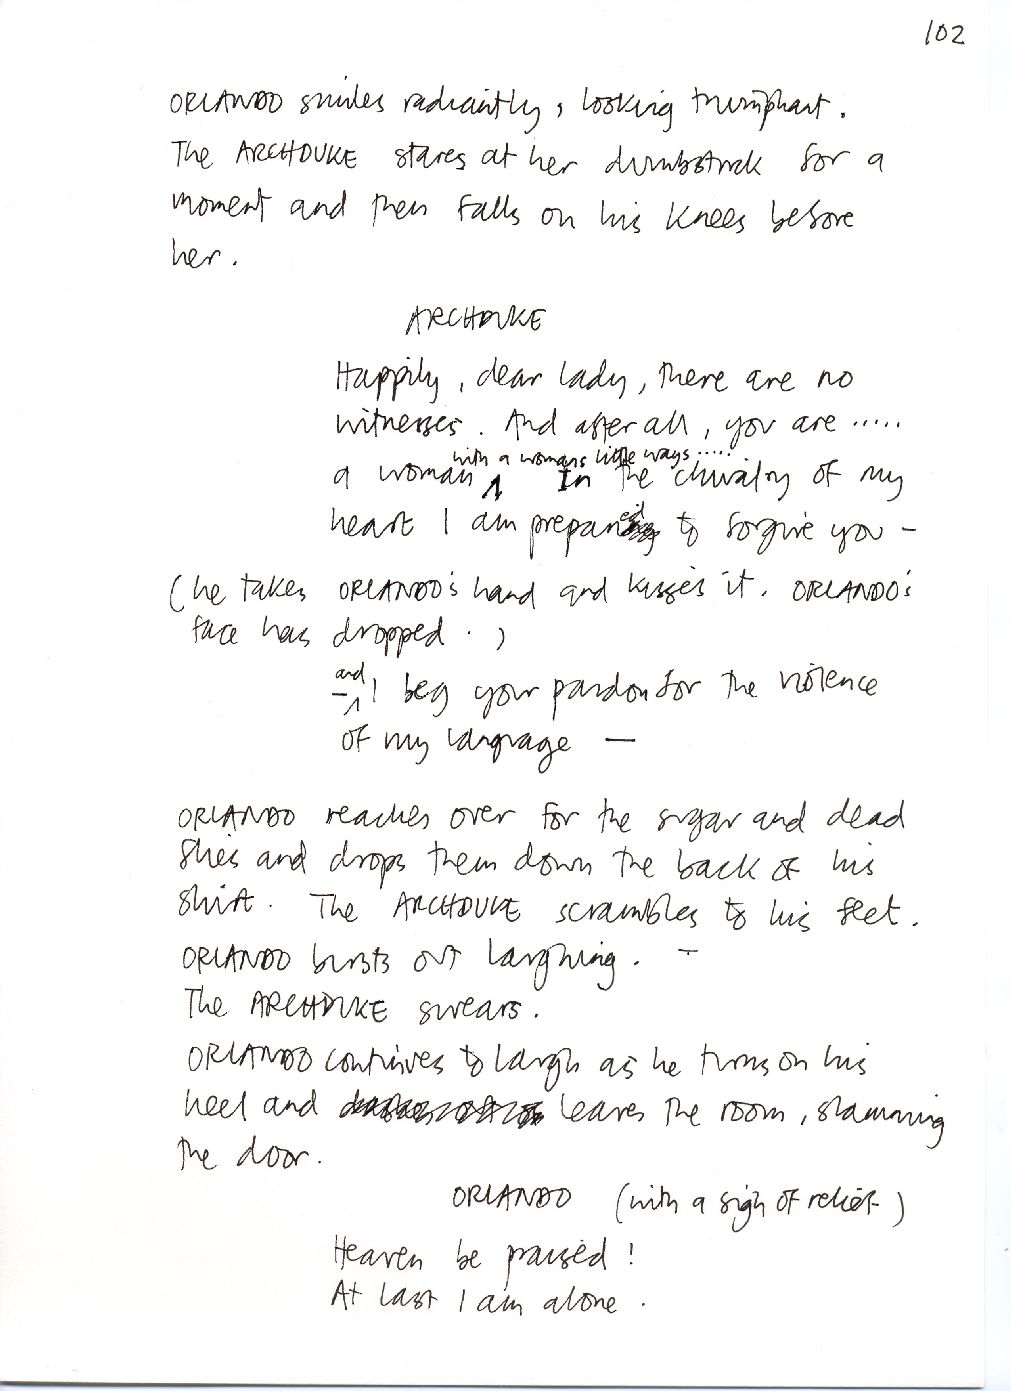 102
ORLANDO smiles radiantly, looking triumphant.
The ARCHDUKE stares at her dumbstruck for a
moment and then falls on his knees before
her.
ARCHDUKE
Happily, dear lady, there are no
witnesses. And after all, you are .....
with a womans little ways .....
a woman In the chivalry of my
heart I am prepared to forgive you -
(he takes ORLANDO's hand and kisses it. ORLANDO's
face has dropped.)
and
- I beg your pardon for the violence
of my language —
ORLANDO reaches over for the sugar and dead
flies and drops them down the back of his
shirt. The ARCHDUKE scrambles to his feet.
ORLANDO bursts out laughing. -
The ARCHDUKE swears.
ORLANDO continues to laugh as he turns on his
heel and leaves the room, slamming
the door.
ORLANDO (with a sigh of relief)
Heaven be praised!
At last I am alone.